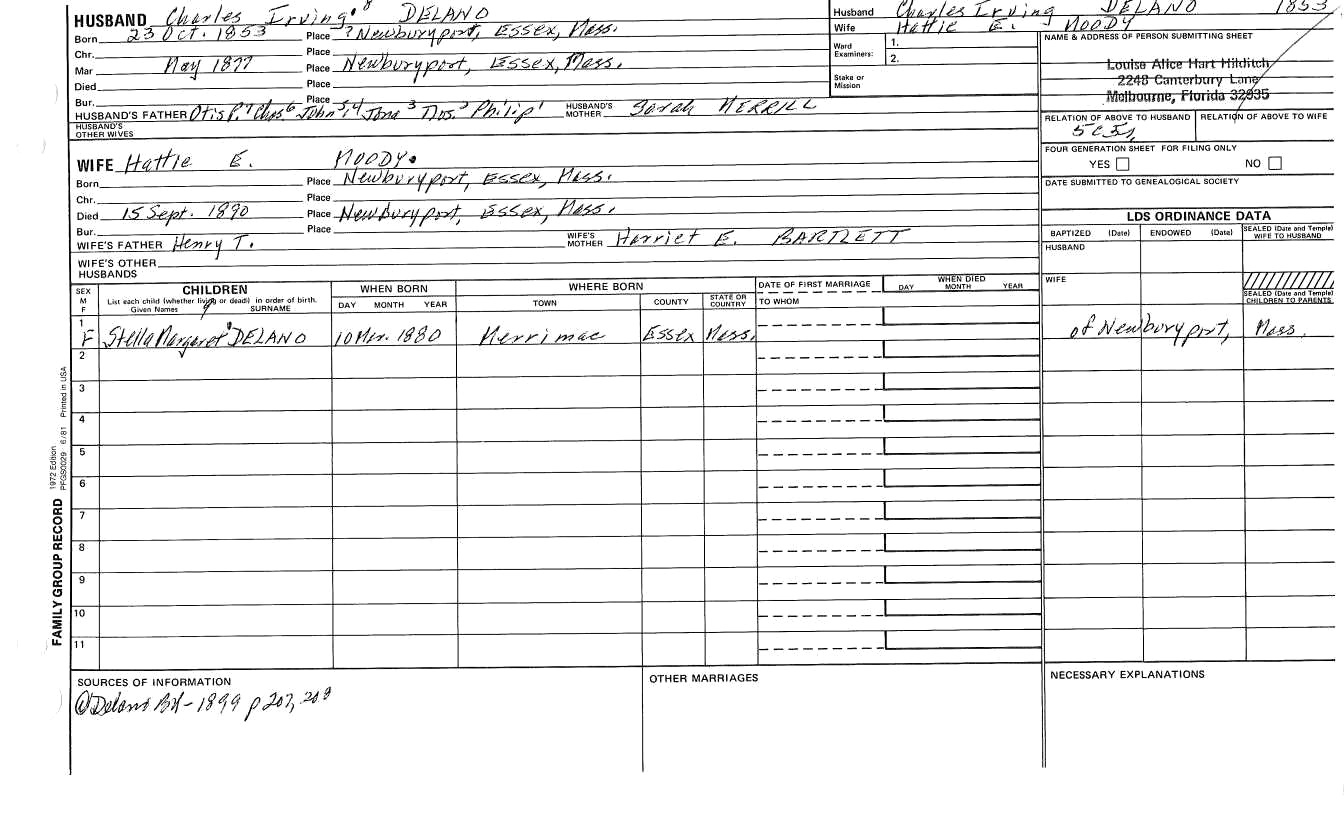 HUSBAND Charles Irving 8 DELANO
Born 23 Oct. 1853 Place ? Newburyport, Essex, Mass.
Chr. Place
Mar May 1877 Place Newburyport, Essex, Mass.
Died Place
Bur. Place
HUSBAND'S FATHER Otis P. 7 Chas 6 John 5,4 Jona 3 Thos. 2 Philip 1 HUSBAND'S MOTHER Sarah MERRILL
HUSBAND'S OTHER WIVES
WIFE Hattie E. MOODY.
Born Place Newburyport, Essex, Mass.
Chr. Place
Died 15 Sept. 1890 Place Newburyport, Essex, Mass.
Bur. Place
WIFE'S FATHER Henry T. WIFE'S MOTHER Harriet E. BARTLETT
WIFE'S OTHER HUSBANDS
Husband Charles Irving DELANO 1853
Wife Hattie E. MOODY
Ward Examiners: 1.
2.
Stake or Mission
NAME & ADDRESS OF PERSON SUBMITTING SHEET
Louise Alice Hart Hilditch
2248 Canterbury Lane
Melbourne, Florida 32935
RELATION OF ABOVE TO HUSBAND RELATION OF ABOVE TO WIFE
FOUR GENERATION SHEET FOR FILING ONLY
YES NO
DATE SUBMITTED TO GENEALOGICAL SOCIETY
LDS ORDINANCE DATA
BAPTIZED (Date) ENDOWED (Date) SEALED (Date and Temple) WIFE TO HUSBAND
HUSBAND
WIFE
SEALED (Date and Temple) CHILDREN TO PARENTS
SEX M F CHILDREN WHEN BORN WHERE BORN DATE OF FIRST MARRIAGE WHEN DIED
List each child (whether living or dead) in order of birth. DAY MONTH YEAR TOWN COUNTY STATE OR COUNTRY TO WHOM DAY MONTH YEAR
Given Names 9 SURNAME
1 F Stella Margaret DELANO 10 Mar. 1880 Merrimac Essex Mass. of Newburyport, Mass.
2
3
4
5
6
7
8
9
10
11
FAMILY GROUP RECORD 1972 Edition PFGS0029 6/81 Printed in USA
SOURCES OF INFORMATION
Delano 1899 p 207, 208
OTHER MARRIAGES
NECESSARY EXPLANATIONS